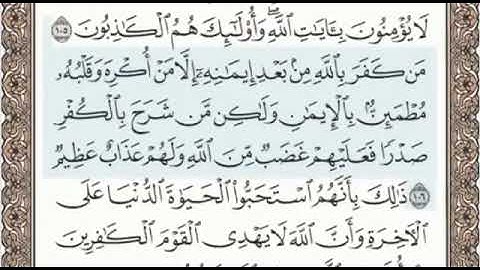 لَا يُؤْمِنُونَ بِـَٔايَٰتِ ٱللَّهِۖ وَأُو۟لَٰٓئِكَ هُمُ ٱلْكَٰذِبُونَ ١٠٥
مَن كَفَرَ بِٱللَّهِ مِنۢ بَعْدِ إِيمَٰنِهِۦٓ إِلَّا مَنْ أُكْرِهَ وَقَلْبُهُۥ
مُطْمَئِنٌّۢ بِٱلْإِيمَٰنِ وَلَٰكِن مَّن شَرَحَ بِٱلْكُفْرِ
صَدْرًا فَعَلَيْهِمْ غَضَبٌ مِّنَ ٱللَّهِ وَلَهُمْ عَذَابٌ عَظِيمٌ
١٠٦ ذَٰلِكَ بِأَنَّهُمُ ٱسْتَحَبُّوا۟ ٱلْحَيَوٰةَ ٱلدُّنْيَا عَلَى
ٱلْءَاخِرَةِ وَأَنَّ ٱللَّهَ لَا يَهْدِى ٱلْقَوْمَ ٱلْكَٰفِرِينَ